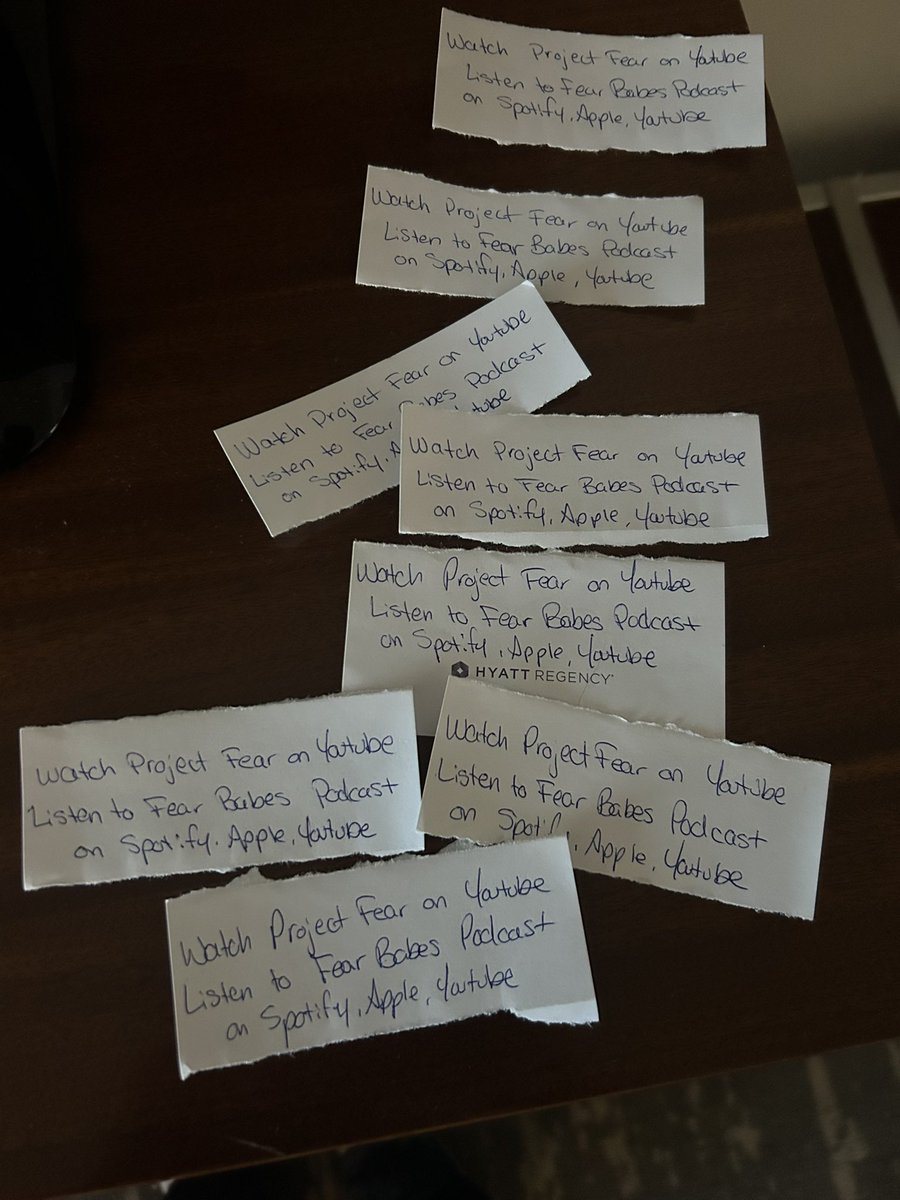 Watch Project Fear on Youtube
Listen to Fear Babes Podcast
on Spotify, Apple, Youtube
Watch Project Fear on Youtube
Listen to Fear Babes Podcast
on Spotify, Apple, Youtube
Watch Project Fear on Youtube
Listen to Fear Podcast
on Spotify,
Watch Project Fear on Youtube
Listen to Fear Babes Podcast
on Spotify, Apple, Youtube
Watch Project Fear on Youtube
Listen to Fear Babes Podcast
on Spotify, Apple, Youtube
HYATT REGENCY
Watch Project Fear on Youtube
Listen to Fear Babes Podcast
on Spotify. Apple, Youtube
Watch Project Fear on Youtube
Listen to Fear Babes Podcast
on Spotify, Apple, Youtube
Watch Project Fear on Youtube
Listen to Fear Babes Podcast
on Spotify, Apple, Youtube